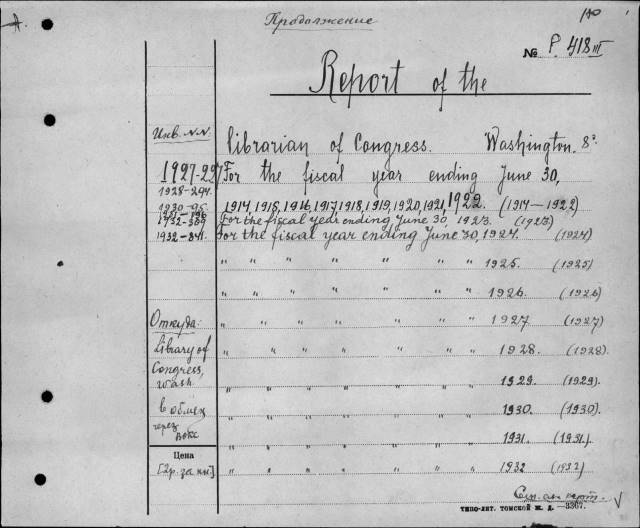 Продолжение
№ P. 418 III
Report of the
Инв. N.N.
Librarian of Congress. Washington. 8°.
1927-227
For the fiscal year ending June 30,
1928-294.
1930-95.
1914, 1915, 1916, 1917, 1918, 1919, 1920, 1921, 1922. (1914-1922)
For the fiscal year ending June 30, 1923. (1923)
1932-841.
For the fiscal year ending June 30, 1924. (1924)
" " " " " " " 1925. (1925)
" " " " " " " 1926. (1926)
Откуда:
" " " " " " " 1927 (1927)
Library of
" " " " " " " 1928. (1928).
Congress,
Wash.
" " " " " " " 1929. (1929).
в обмен
" " " " " " " 1930. (1930).
через
вокс
" " " " " " " 1931. (1931.)
Цена
[2р. за кн.]
" " " " " " " 1932 (1932)
См. на черт.
ТИПО-ЛИТ. ТОМСКОЙ Ж. Д.—3367.